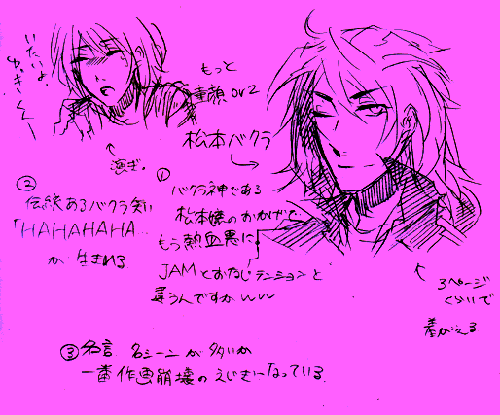 いたいよ
もっと
童顔 or 2
松本バクラ
①
バクラ神である
松本様のおかげで
もう熱血悪に
JAMとおなじテンションと
言うんですかwww
②
伝統あるバクラ笑い
「HAHAHAHA…
が生まれる
3ページ
くらいで
差がえる
③名言 名シーンが多いが
一番作画崩壊のえじきになっている